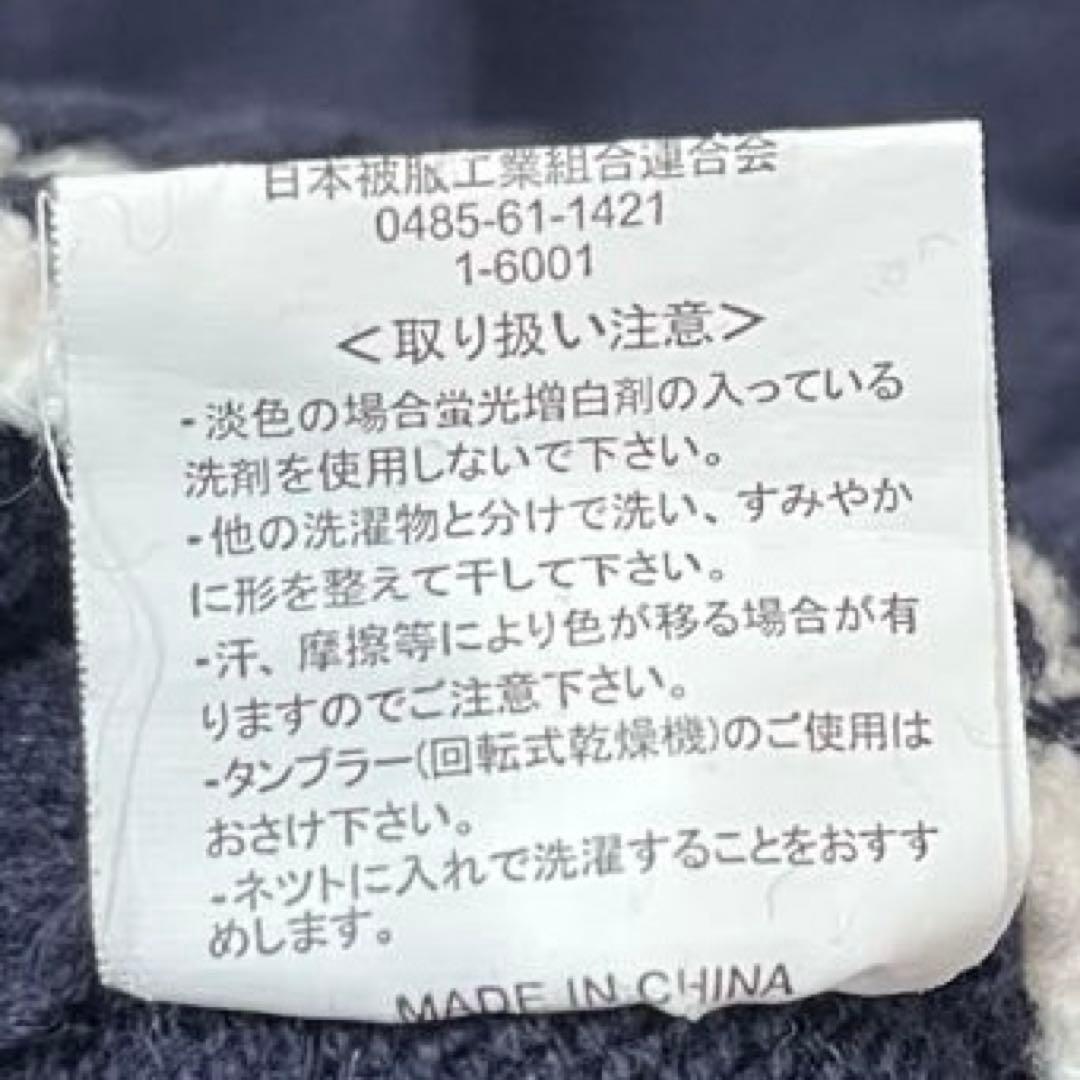 日本被服工業組合連合会
0485-61-1421
1-6001
＜取り扱い注意＞
-淡色の場合蛍光増白剤の入っている
洗剤を使用しないで下さい。
-他の洗濯物と分けで洗い、すみやか
に形を整えて干して下さい。
-汗、摩擦等により色が移る場合が有
りますのでご注意下さい。
-タンブラー(回転式乾燥機)のご使用は
おさけ下さい。
-ネツトに入れで洗濯することをおすす
めします。
MADE IN CHINA